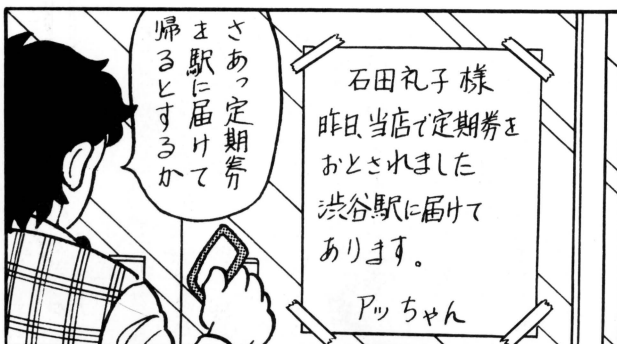 さあっ定期券
を駅に届けて
帰るとするか
石田礼子様
昨日、当店で定期券を
おとされました
渋谷駅に届けて
あります。
アッちゃん